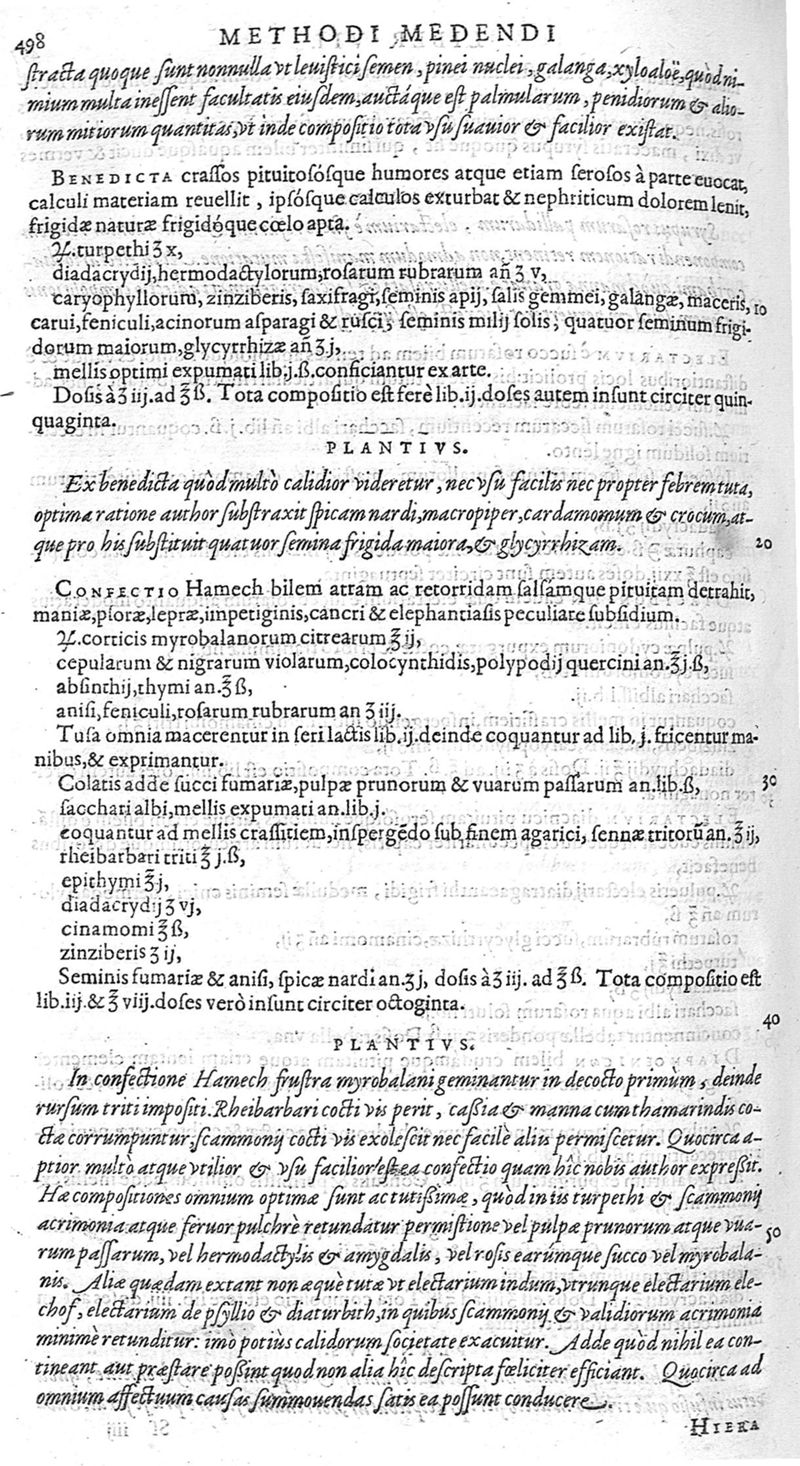 498
METHODI MEDENDI
ſtracta quoque ſunt nonnulla vt leuiſtici ſemen, pinei nuclei, galanga, xyloaloë, quòd ni-
mium multa ineſſent facultatis eiuſdem, auctáque eſt palmularum, penidiorum & alio-
rum mitiorum quantitas, vt inde compoſitio tota vſu ſuauior & facilior exiſtat.
BENEDICTA craſſos pituitoſóſque humores atque etiam ſeroſos à parte euocat,
calculi materiam reuellit, ipſóſque calculos exturbat & nephriticum dolorem lenit,
frigidæ naturæ frigidóque cœlo apta.
℞. turpethi ʒ x,
diadacrydij, hermodactylorum, roſarum rubrarum añ ʒ v,
caryophyllorum, zinziberis, ſaxifragi, ſeminis apij, ſalis gemmei, galangæ, maceris, 10
carui, feniculi, acinorum aſparagi & ruſci, ſeminis milij ſolis, quatuor ſeminum frigi-
dorum maiorum, glycyrrhizæ añ ʒ j,
mellis optimi expumati lib. j. ß. conficiantur ex arte.
Doſis à ʒ iij. ad ℥ ß. Tota compoſitio eſt ferè lib. ij. doſes autem inſunt circiter quin-
quaginta.
PLANTIVS.
Ex benedicta quòd multò calidior videretur, nec vſu facilis nec propter febrem tuta,
optima ratione author ſubſtraxit ſpicam nardi, macropiper, cardamomum & crocum, at-
que pro his ſubſtituit quatuor ſemina frigida maiora, & glycyrrhizam. 20
CONFECTIO Hamech bilem atram ac retorridam ſalſámque pituitam detrahit,
maniæ, pſoræ, lepræ, impetiginis, cancri & elephantiaſis peculiare ſubſidium.
℞. corticis myrobalanorum citrearum ℥ ij,
cepularum & nigrarum violarum, colocynthidis, polypodij quercini an. ℥ j. ß,
abſinthij, thymi an. ℥ ß,
aniſi, feniculi, roſarum rubrarum an ʒ iij.
Tuſa omnia macerentur in ſeri lactis lib. ij. deinde coquantur ad lib. j. fricentur ma-
nibus, & exprimantur.
Colatis adde ſucci fumariæ, pulpæ prunorum & vuarum paſſarum an. lib. ß, 30
ſacchari albi, mellis expumati an. lib. j.
coquantur ad mellis craſſitiem, inſpergẽdo ſub finem agarici, ſennæ tritorũ an. ℥ ij,
rheibarbari triti ℥ j. ß,
epithymi ℥ j,
diadacrydij ʒ vj,
cinamomi ℥ ß,
zinziberis ʒ ij,
Seminis fumariæ & aniſi, ſpicæ nardi an. ʒ j, doſis à ʒ iij. ad ℥ ß. Tota compoſitio eſt
lib. iij. & ℥ viij. doſes verò inſunt circiter octoginta.
40
PLANTIVS.
In confectione Hamech fruſtra myrobalani geminantur in decocto primùm, deinde
rurſum triti impoſiti. Rheibarbari cocti vis perit, caßia & manna cum thamarindis co-
cta corrumpuntur, ſcammonij cocti vis exoleſcit nec facilè aliis permiſcetur. Quocirca a-
ptior multò atque vtilior & vſu facilior eſt ea confectio quam hîc nobis author expreßit.
Hæ compoſitiones omnium optimæ ſunt ac tutißimæ, quòd in iis turpethi & ſcammonij
acrimonia atque feruor pulchrè retundatur permiſtione vel pulpæ prunorum atque vua- 50
rum paſſarum, vel hermodactylis & amygdalis, vel roſis earúmque ſucco vel myrobala-
nis. Aliæ quædam extant non æquè tutæ vt electarium indum, vtrunque electarium ele-
chof, electarium de pſyllio & diaturbith, in quibus ſcammonij & validiorum acrimonia
minimè retunditur: imò potiùs calidorum ſocietate exacuitur. Adde quòd nihil ea con-
tineant aut præſtare poßint quod non alia hîc deſcripta fœliciter efficiant. Quocirca ad
omnium affectuum cauſas ſummouendas ſatis ea poſſunt conducere.
HIERA